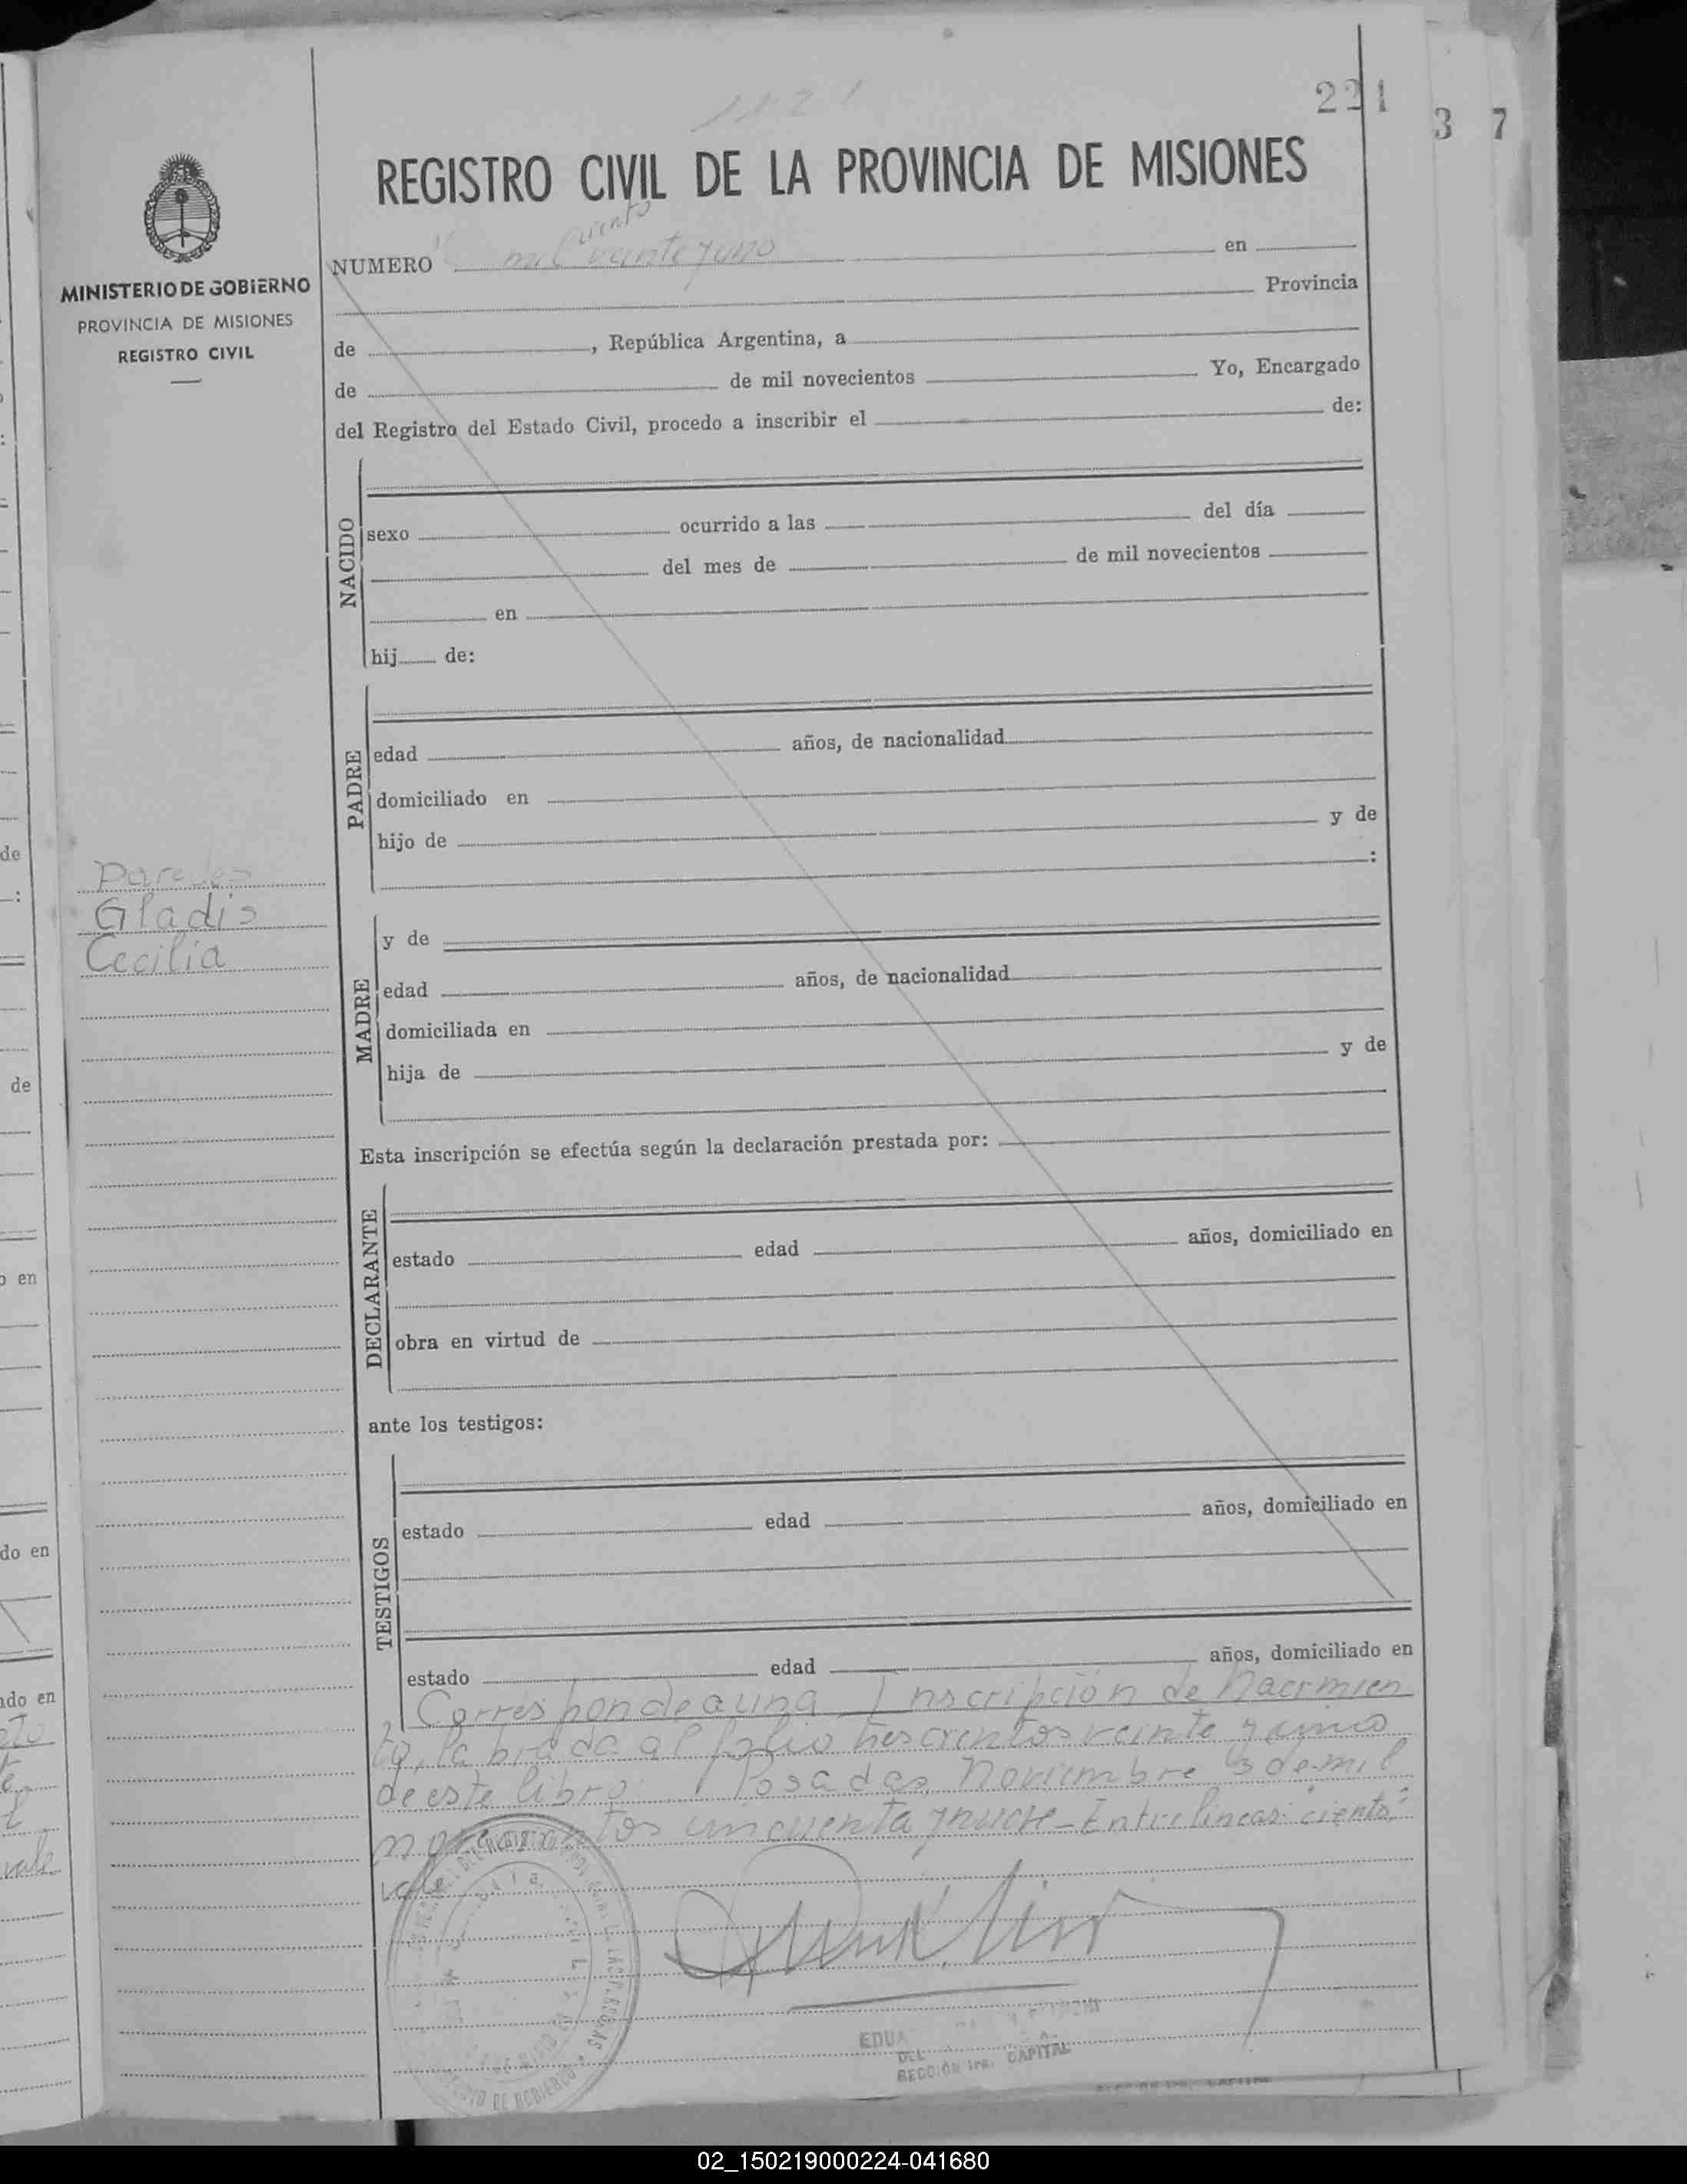 1121
221
3 7
REGISTRO CIVIL DE LA PROVINCIA DE MISIONES
MINISTERIO DE GOBIERNO
PROVINCIA DE MISIONES
REGISTRO CIVIL
ciento
NUMERO mil veinte y uno en
Provincia
de , República Argentina, a
de de mil novecientos Yo, Encargado
del Registro del Estado Civil, procedo a inscribir el de:
NACIDO
sexo ocurrido a las del día
del mes de de mil novecientos
en
hij de:
PADRE
edad años, de nacionalidad
domiciliado en
hijo de y de
:
Paredes
Gladis
Cecilia
MADRE
y de
edad años, de nacionalidad
domiciliada en
hija de y de
Esta inscripción se efectúa según la declaración prestada por:
DECLARANTE
estado edad años, domiciliado en
obra en virtud de
ante los testigos:
TESTIGOS
estado edad años, domiciliado en
estado edad años, domiciliado en
Corresponde a una Inscripción de Nacimien
to, labrada al folio trescientos veinte y cinco
de este libro. Posadas, Noviembre 3 de mil
novecientos cincuenta y nueve - Entrelineas: "ciento":
vale
EDUA
DEL
SECCIÓN 1ra. CAPITAL
02_150219000224-041680